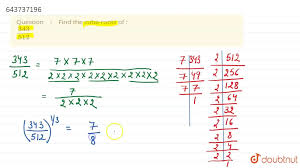 643737196
Question : Find the cube-roots of :
343
512
343/512 = 7×7×7 / 2×2×2×2×2×2×2×2×2
= 7 / 2×2×2
(343/512)^1/3 = 7/8
7 343
7 49
7 7
1
2 512
2 256
2 128
2 64
2 32
2 16
2 8
2 4
2 2
1
doubtnut